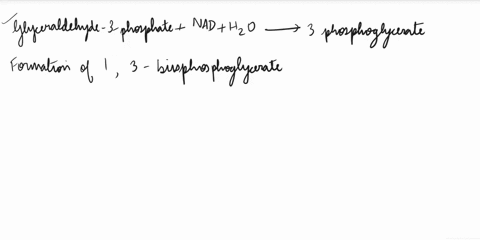 Glyceraldehyde-3 phosphate + NAD + H2O ⟶ 3 phosphoglycerate
Formation of 1, 3 - bisphosphoglycerate